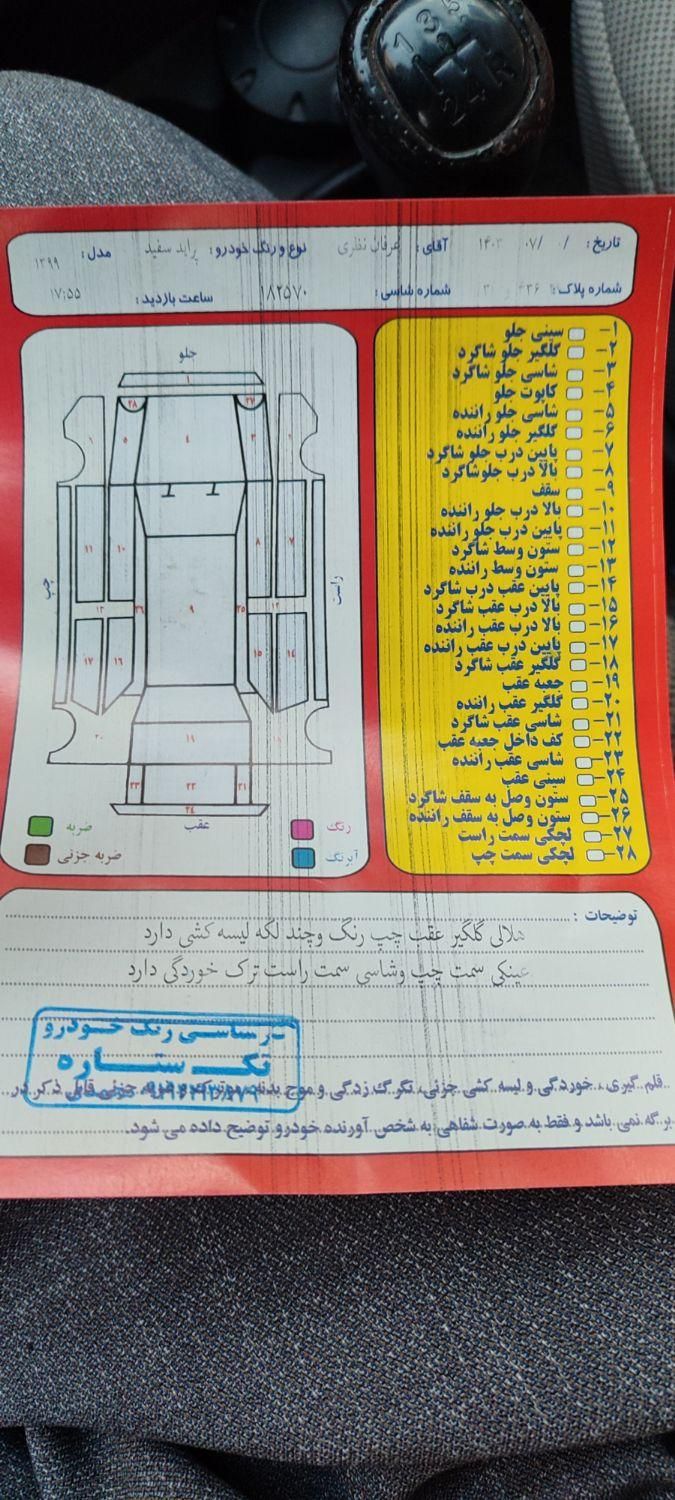 1 3 5
2 4 R
تاریخ: / ۰۷/ ۱۴۰۳ آقای: عرفان نظری نوع و رنگ خودرو: پراید سفید مدل: ۱۳۹۹
شماره پلاک: ۴۳۶ شماره شاسی: ۱۸۲۵۷۰ ساعت بازدید: ۱۷:۵۵
۱- سینی جلو
۲- گلگیر جلو شاگرد
۳- شاسی جلو شاگرد
۴- کاپوت جلو
۵- شاسی جلو راننده
۶- گلگیر جلو راننده
۷- پایین درب جلو شاگرد
۸- بالا درب جلوشاگرد
۹- سقف
۱۰- بالا درب جلو راننده
۱۱- پایین درب جلو راننده
۱۲- ستون وسط شاگرد
۱۳- ستون وسط راننده
۱۴- پایین عقب درب شاگرد
۱۵- بالا درب عقب شاگرد
۱۶- بالا درب عقب راننده
۱۷- پایین درب عقب راننده
۱۸- گلگیر عقب شاگرد
۱۹- جعبه عقب
۲۰- گلگیر عقب راننده
۲۱- شاسی عقب شاگرد
۲۲- کف داخل جعبه عقب
۲۳- شاسی عقب راننده
۲۴- سینی عقب
۲۵- ستون وصل به سقف شاگرد
۲۶- ستون وصل به سقف راننده
۲۷- لچکی سمت راست
۲۸- لچکی سمت چپ
جلو
۱
۲۷ ۲۸
۳ ۴ ۵
۷ ۸ ۱۰ ۱۱
راست چپ
۹
۱۲ ۲۵ ۲۶ ۱۳
۱۴ ۱۵ ۱۶ ۱۷
۱۹ ۲۰
۲۱ ۲۲ ۲۳
۲۴
عقب
رنگ ضربه
آبرنگ ضربه جزئی
توضیحات :
هلالی گلگیر عقب چپ رنگ وچند لکه لیسه کشی دارد
عینکی سمت چپ وشاسی سمت راست ترک خوردگی دارد
رنگ خودرو
تک ستاره
قلم گیری، خوردگی و لیسه کشی جزئی، تگرگ زدگی و موج بدنه، جزئی قابل ذکر در
برگه نمی باشد و فقط به صورت شفاهی به شخص آورنده خودرو توضیح داده می شود.